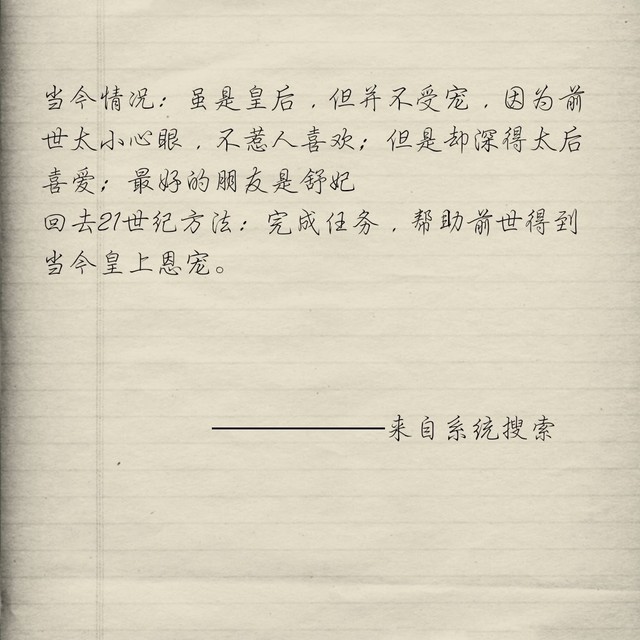 当今情况：虽是皇后，但并不受宠，因为前
世太小心眼，不惹人喜欢；但是却深得太后
喜爱；最好的朋友是舒妃
回去21世纪方法：完成任务，帮助前世得到
当今皇上恩宠。
——————来自系统搜索